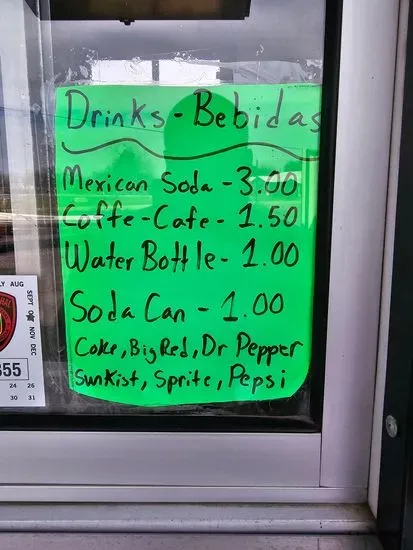 Drinks - Bebidas
Mexican Soda - 3.00
Coffe - Cafe - 1.50
Water Bottle - 1.00
Soda Can - 1.00
Coke, Big Red, Dr Pepper
Sunkist, Sprite, Pepsi
LY AUG
SEPT OCT NOV DEC
355
24 25
30 31